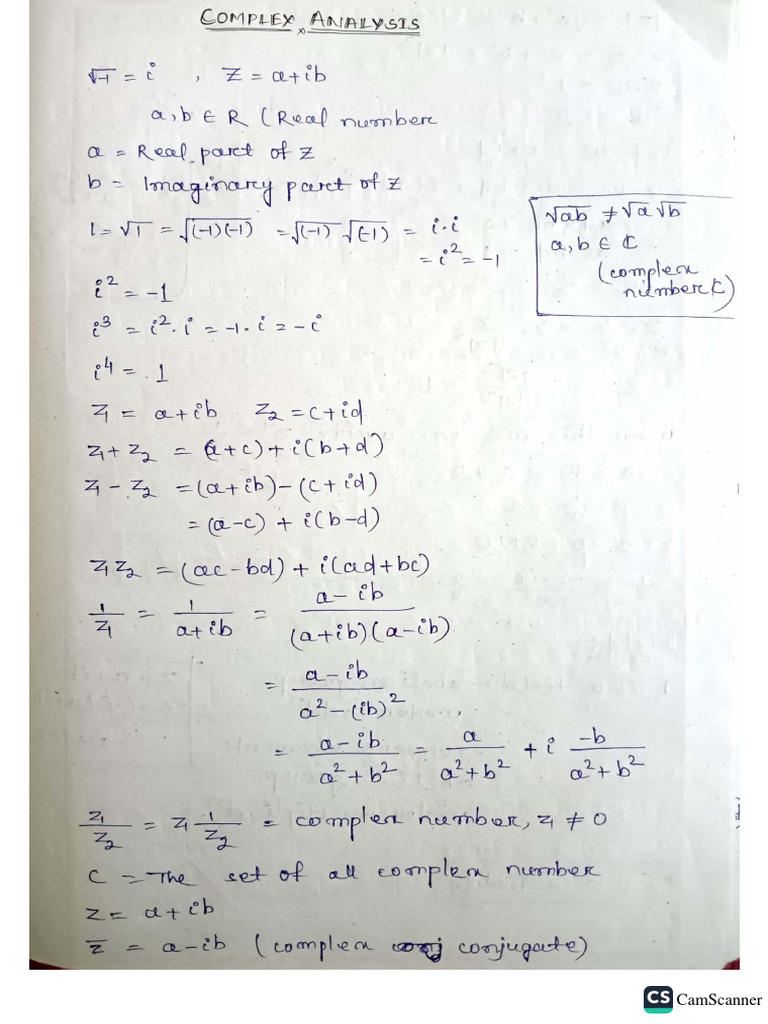 COMPLEX ANALYSIS
√-1 = i , Z = a+ib
a,b ∈ R (Real number
a = Real part of Z
b = Imaginary part of Z
1 = √1 = √(-1)(-1) = √(-1) √(-1) = i·i
= i² = -1
√ab ≠ √a √b
a, b ∈ ℂ
(complex
number)
i² = -1
i³ = i²·i = -1·i = -i
i⁴ = 1
Z₁ = a+ib Z₂ = c+id
Z₁+Z₂ = (a+c)+i(b+d)
Z₁-Z₂ = (a+ib)-(c+id)
= (a-c) + i(b-d)
Z₁Z₂ = (ac-bd)+i(ad+bc)
1/Z₁ = 1/(a+ib) = (a-ib)/((a+ib)(a-ib))
= (a-ib)/(a²-(ib)²)
= (a-ib)/(a²+b²) = a/(a²+b²) + i (-b)/(a²+b²)
Z₁/Z₂ = Z₁ 1/Z₂ = complex number, Z₁ ≠ 0
C = The set of all complex number
Z = a+ib
z̅ = a-ib (complex conjugate)
CS CamScanner